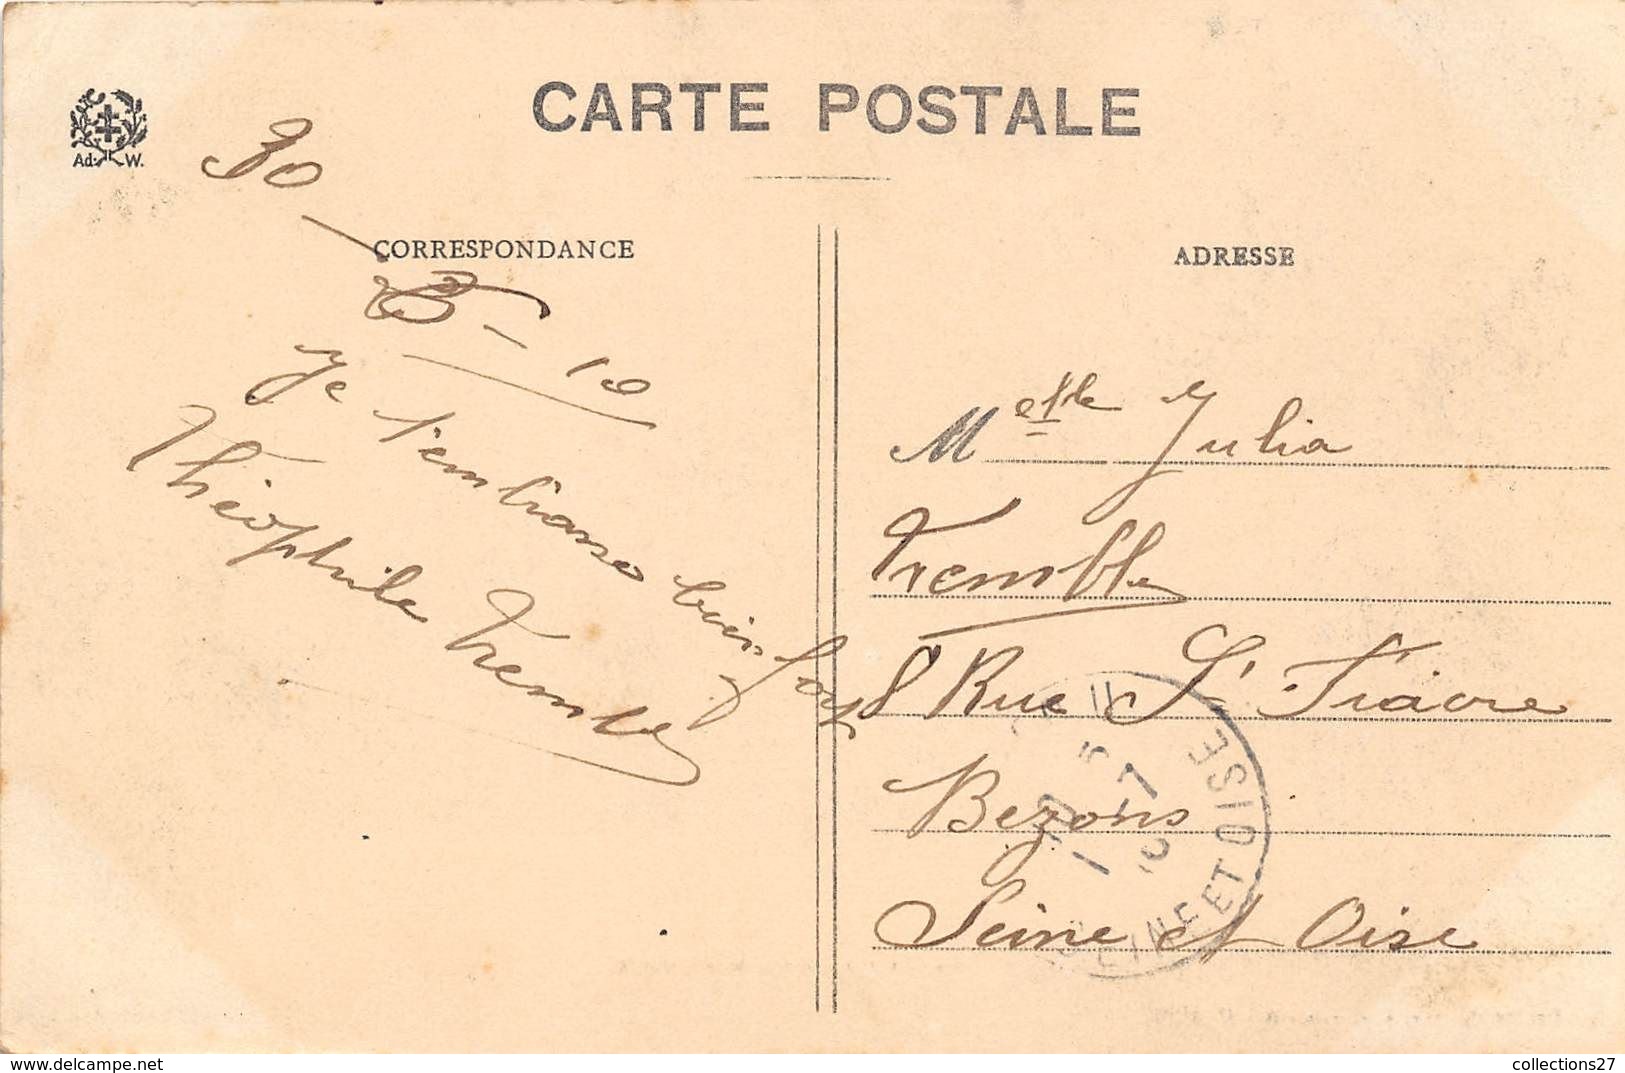 CARTE POSTALE
Ad. W.
CORRESPONDANCE
ADRESSE
30
5 - 10
Je t'embrasse bien fort
Théophile Tremble
Melle Julia
Tremble
8 Rue St Fiacre
Bezons
Seine et Oise
SEINE ET OISE
collections27